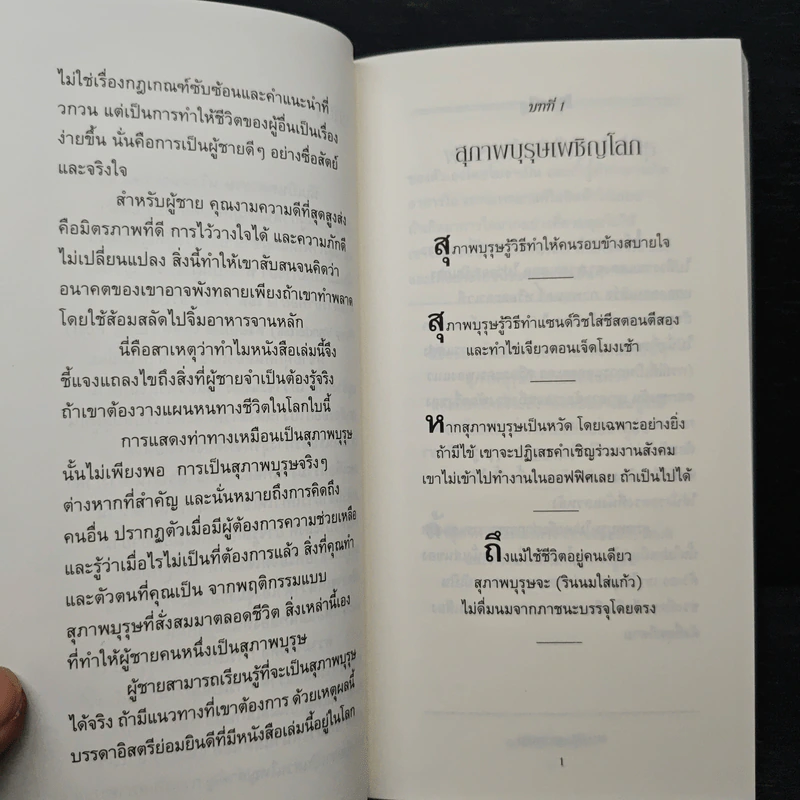 ไม่ใช่เรื่องกฎเกณฑ์ซับซ้อนและคำแนะนำที่
วกวน แต่เป็นการทำให้ชีวิตของผู้อื่นเป็นเรื่อง
ง่ายขึ้น นั่นคือการเป็นผู้ชายดีๆ อย่างซื่อสัตย์
และจริงใจ
สำหรับผู้ชาย คุณงามความดีที่สุดสูงส่ง
คือมิตรภาพที่ดี การไว้วางใจได้ และความภักดี
ไม่เปลี่ยนแปลง สิ่งนี้ทำให้เขาสับสนจนคิดว่า
อนาคตของเขาอาจพังทลายเพียงถ้าเขาทำพลาด
โดยใช้ส้อมสลัดไปจิ้มอาหารจานหลัก
นี่คือสาเหตุว่าทำไมหนังสือเล่มนี้จึง
ชี้แจงแถลงไขถึงสิ่งที่ผู้ชายจำเป็นต้องรู้จริง
ถ้าเขาต้องวางแผนหนทางชีวิตในโลกใบนี้
การแสดงท่าทางเหมือนเป็นสุภาพบุรุษ
นั้นไม่เพียงพอ การเป็นสุภาพบุรุษจริงๆ
ต่างหากที่สำคัญ และนั่นหมายถึงการคิดถึง
คนอื่น ปรากฏตัวเมื่อมีผู้ต้องการความช่วยเหลือ
และรู้ว่าเมื่อไรไม่เป็นที่ต้องการแล้ว สิ่งที่คุณทำ
และตัวตนที่คุณเป็น จากพฤติกรรมแบบ
สุภาพบุรุษที่สั่งสมมาตลอดชีวิต สิ่งเหล่านี้เอง
ที่ทำให้ผู้ชายคนหนึ่งเป็นสุภาพบุรุษ
ผู้ชายสามารถเรียนรู้ที่จะเป็นสุภาพบุรุษ
ได้จริง ถ้ามีแนวทางที่เขาต้องการ ด้วยเหตุผลนี้
บรรดาอิสตรีย่อมยินดีที่มีหนังสือเล่มนี้อยู่ในโลก
บทที่ 1
สุภาพบุรุษเผชิญโลก
สุภาพบุรุษรู้วิธีทำให้คนรอบข้างสบายใจ
สุภาพบุรุษรู้วิธีทำแซนด์วิชใส่ชีสตอนตีสอง
และทำไข่เจียวตอนเจ็ดโมงเช้า
หากสุภาพบุรุษเป็นหวัด โดยเฉพาะอย่างยิ่ง
ถ้ามีไข้ เขาจะปฏิเสธคำเชิญร่วมงานสังคม
เขาไม่เข้าไปทำงานในออฟฟิศเลย ถ้าเป็นไปได้
ถึงแม้ใช้ชีวิตอยู่คนเดียว
สุภาพบุรุษจะ (รินนมใส่แก้ว)
ไม่ดื่มนมจากภาชนะบรรจุโดยตรง
1